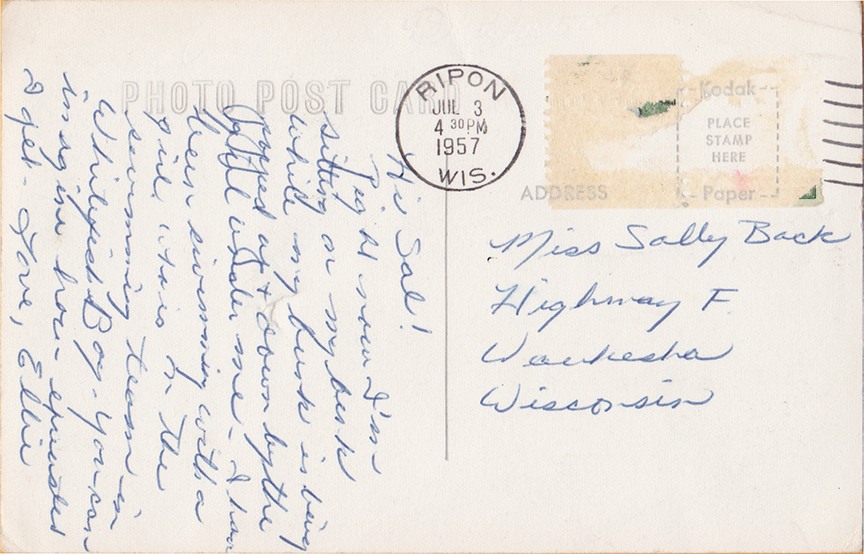 PHOTO POST CARD
RIPON
JUL 3
4 30 PM
1957
WIS.
Kodak
PLACE
STAMP
HERE
Paper
ADDRESS
Miss Sally Back
Highway F
Waukesha
Wisconsin
Hi Sal!
Right now I'm
sitting on my bunk
while my bunk is being
popped up + down by the
under me - I have
been swimming with a
girl who is on the
swimming team in
Whitefish Bay - You can
imagine how
I get - Love, Ellie